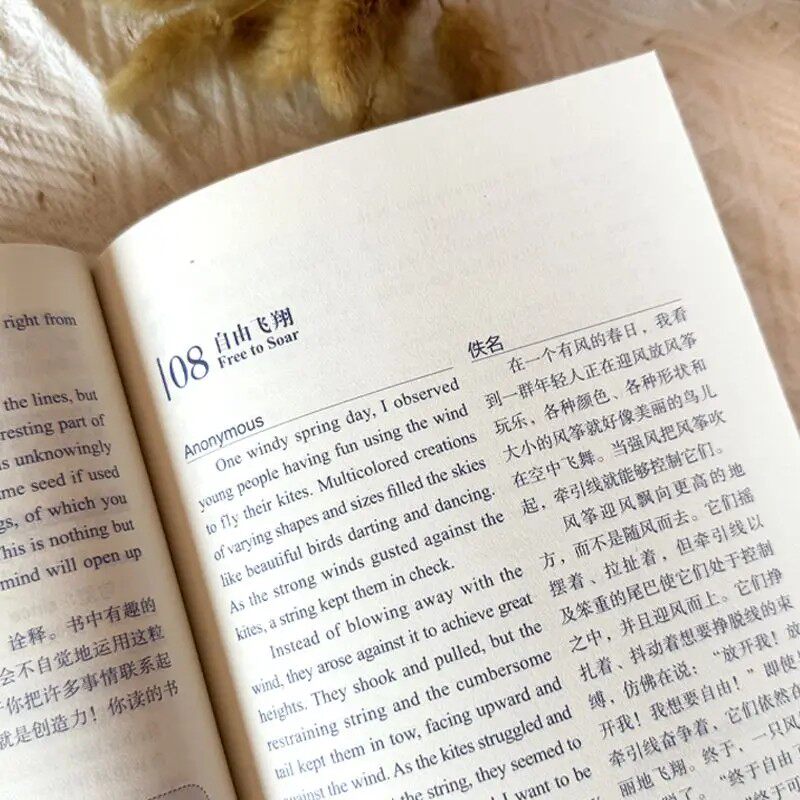 right from
the lines, but
resting part of
s unknowingly
me seed if used
gs, of which you
This is nothing but
mind will open up
诠释。书中有趣的
会不自觉地运用这粒
你把许多事情联系起
就是创造力！你读的书
08
自由飞翔
Free to Soar
Anonymous
One windy spring day, I observed
young people having fun using the wind
to fly their kites. Multicolored creations
of varying shapes and sizes filled the skies
like beautiful birds darting and dancing.
As the strong winds gusted against the
kites, a string kept them in check.
Instead of blowing away with the
wind, they arose against it to achieve great
heights. They shook and pulled, but the
restraining string and the cumbersome
tail kept them in tow, facing upward and
against the wind. As the kites struggled and
the string, they seemed to
I want to be
佚名
在一个有风的春日，我看
到一群年轻人正在迎风放风筝
玩乐，各种颜色、各种形状和
大小的风筝就好像美丽的鸟儿
在空中飞舞。当强风把风筝吹
起，牵引线就能够控制它们。
风筝迎风飘向更高的地
方，而不是随风而去。它们摇
摆着、拉扯着，但牵引线以
及笨重的尾巴使它们处于控制
之中，并且迎风而上。它们挣
扎着、抖动着想要挣脱线的束
缚，仿佛在说：“放开我！放
开我！我想要自由！”即使
牵引线奋争着，它们依然在
丽地飞翔。终于，一只风
了。“终于自由
“终于可